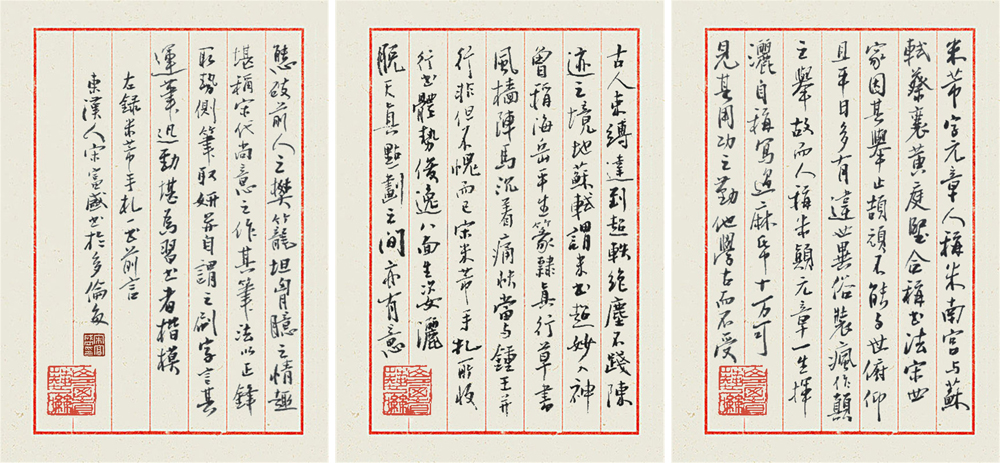 米芾字元章人稱米南宮与蘇
軾蔡襄黃庭堅合稱書法宋四
家因其舉止頡頏不能与世俯仰
且平日多有違世異俗裝瘋作顛
之舉故而人稱米顛元章一生揮
灑自稱寫過麻牋十万可
見其用功之勤他學古而不受
古人束縛達到超軼絕塵不踐陳
迹之境地蘇軾謂米書超妙入神
曾稱海岳平生篆隸真行草書
風檣陣馬沉着痛快當与鍾王并
行非但不愧而已宋米芾手札所收
行書體勢俊逸八面生姿灑
脫天真點劃之間亦有意
態破前人之樊籠坦胷臆之情趣
堪稱宋代尚意之作其筆法以正鋒
取勢側筆取妍并自謂之刷字言其
運筆迅勁堪為習書者楷模
左錄米芾手札一書前言
東漢人宋宣盛書於多倫多